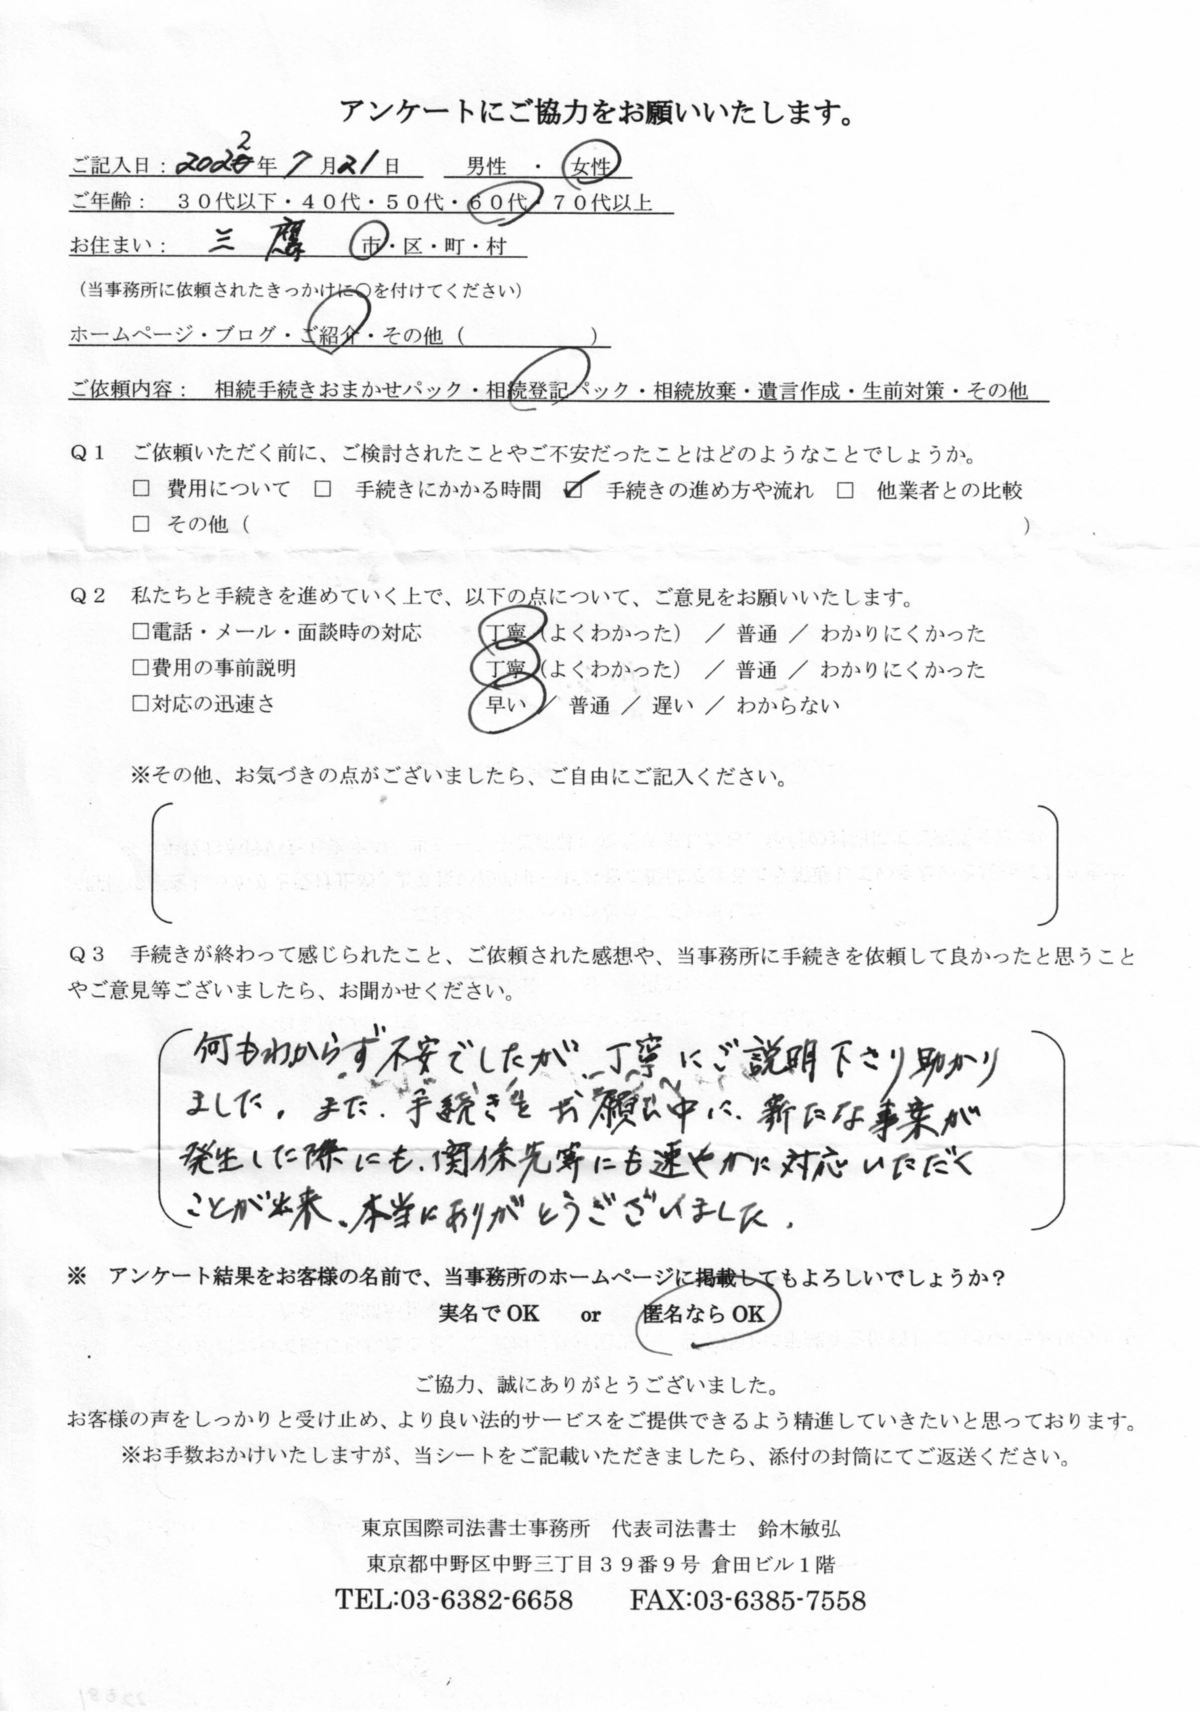 アンケートにご協力をお願いいたします。
ご記入日：2022年 7月21日　男性　・　女性
ご年齢：　３０代以下・４０代・５０代・６０代・７０代以上
お住まい：　三鷹　市・区・町・村
（当事務所に依頼されたきっかけに○を付けてください）
ホームページ・ブログ・ご紹介・その他（　　　　　　）
ご依頼内容：　相続手続きおまかせパック・相続登記パック・相続放棄・遺言作成・生前対策・その他
Ｑ１　ご依頼いただく前に、ご検討されたことやご不安だったことはどのようなことでしょうか。
□ 費用について　□　手続きにかかる時間　☑　手続きの進め方や流れ　□　他業者との比較
□ その他（　　　　　　　　　　　　　　　　　　　　）
Ｑ２　私たちと手続きを進めていく上で、以下の点について、ご意見をお願いいたします。
□電話・メール・面談時の対応　　丁寧（よくわかった）　／ 普通 ／ わかりにくかった
□費用の事前説明　　丁寧（よくわかった）　／ 普通 ／ わかりにくかった
□対応の迅速さ　　早い ／ 普通 ／ 遅い ／ わからない
※その他、お気づきの点がございましたら、ご自由にご記入ください。
Ｑ３　手続きが終わって感じられたこと、ご依頼された感想や、当事務所に手続きを依頼して良かったと思うこと
やご意見等ございましたら、お聞かせください。
何もわからず不安でしたが、丁寧にご説明下さり助かり
ました。また、手続きをお願い中に、新たな事案が
発生した際にも、関係先等にも速やかに対応いただく
ことが出来、本当にありがとうございました。
※　アンケート結果をお客様の名前で、当事務所のホームページに掲載してもよろしいでしょうか？
実名でOK　　or　　匿名ならOK
ご協力、誠にありがとうございました。
お客様の声をしっかりと受け止め、より良い法的サービスをご提供できるよう精進していきたいと思っております。
※お手数おかけいたしますが、当シートをご記載いただきましたら、添付の封筒にてご返送ください。
東京国際司法書士事務所　代表司法書士　鈴木敏弘
東京都中野区中野三丁目３９番９号 倉田ビル１階
TEL:03-6382-6658　　FAX:03-6385-7558